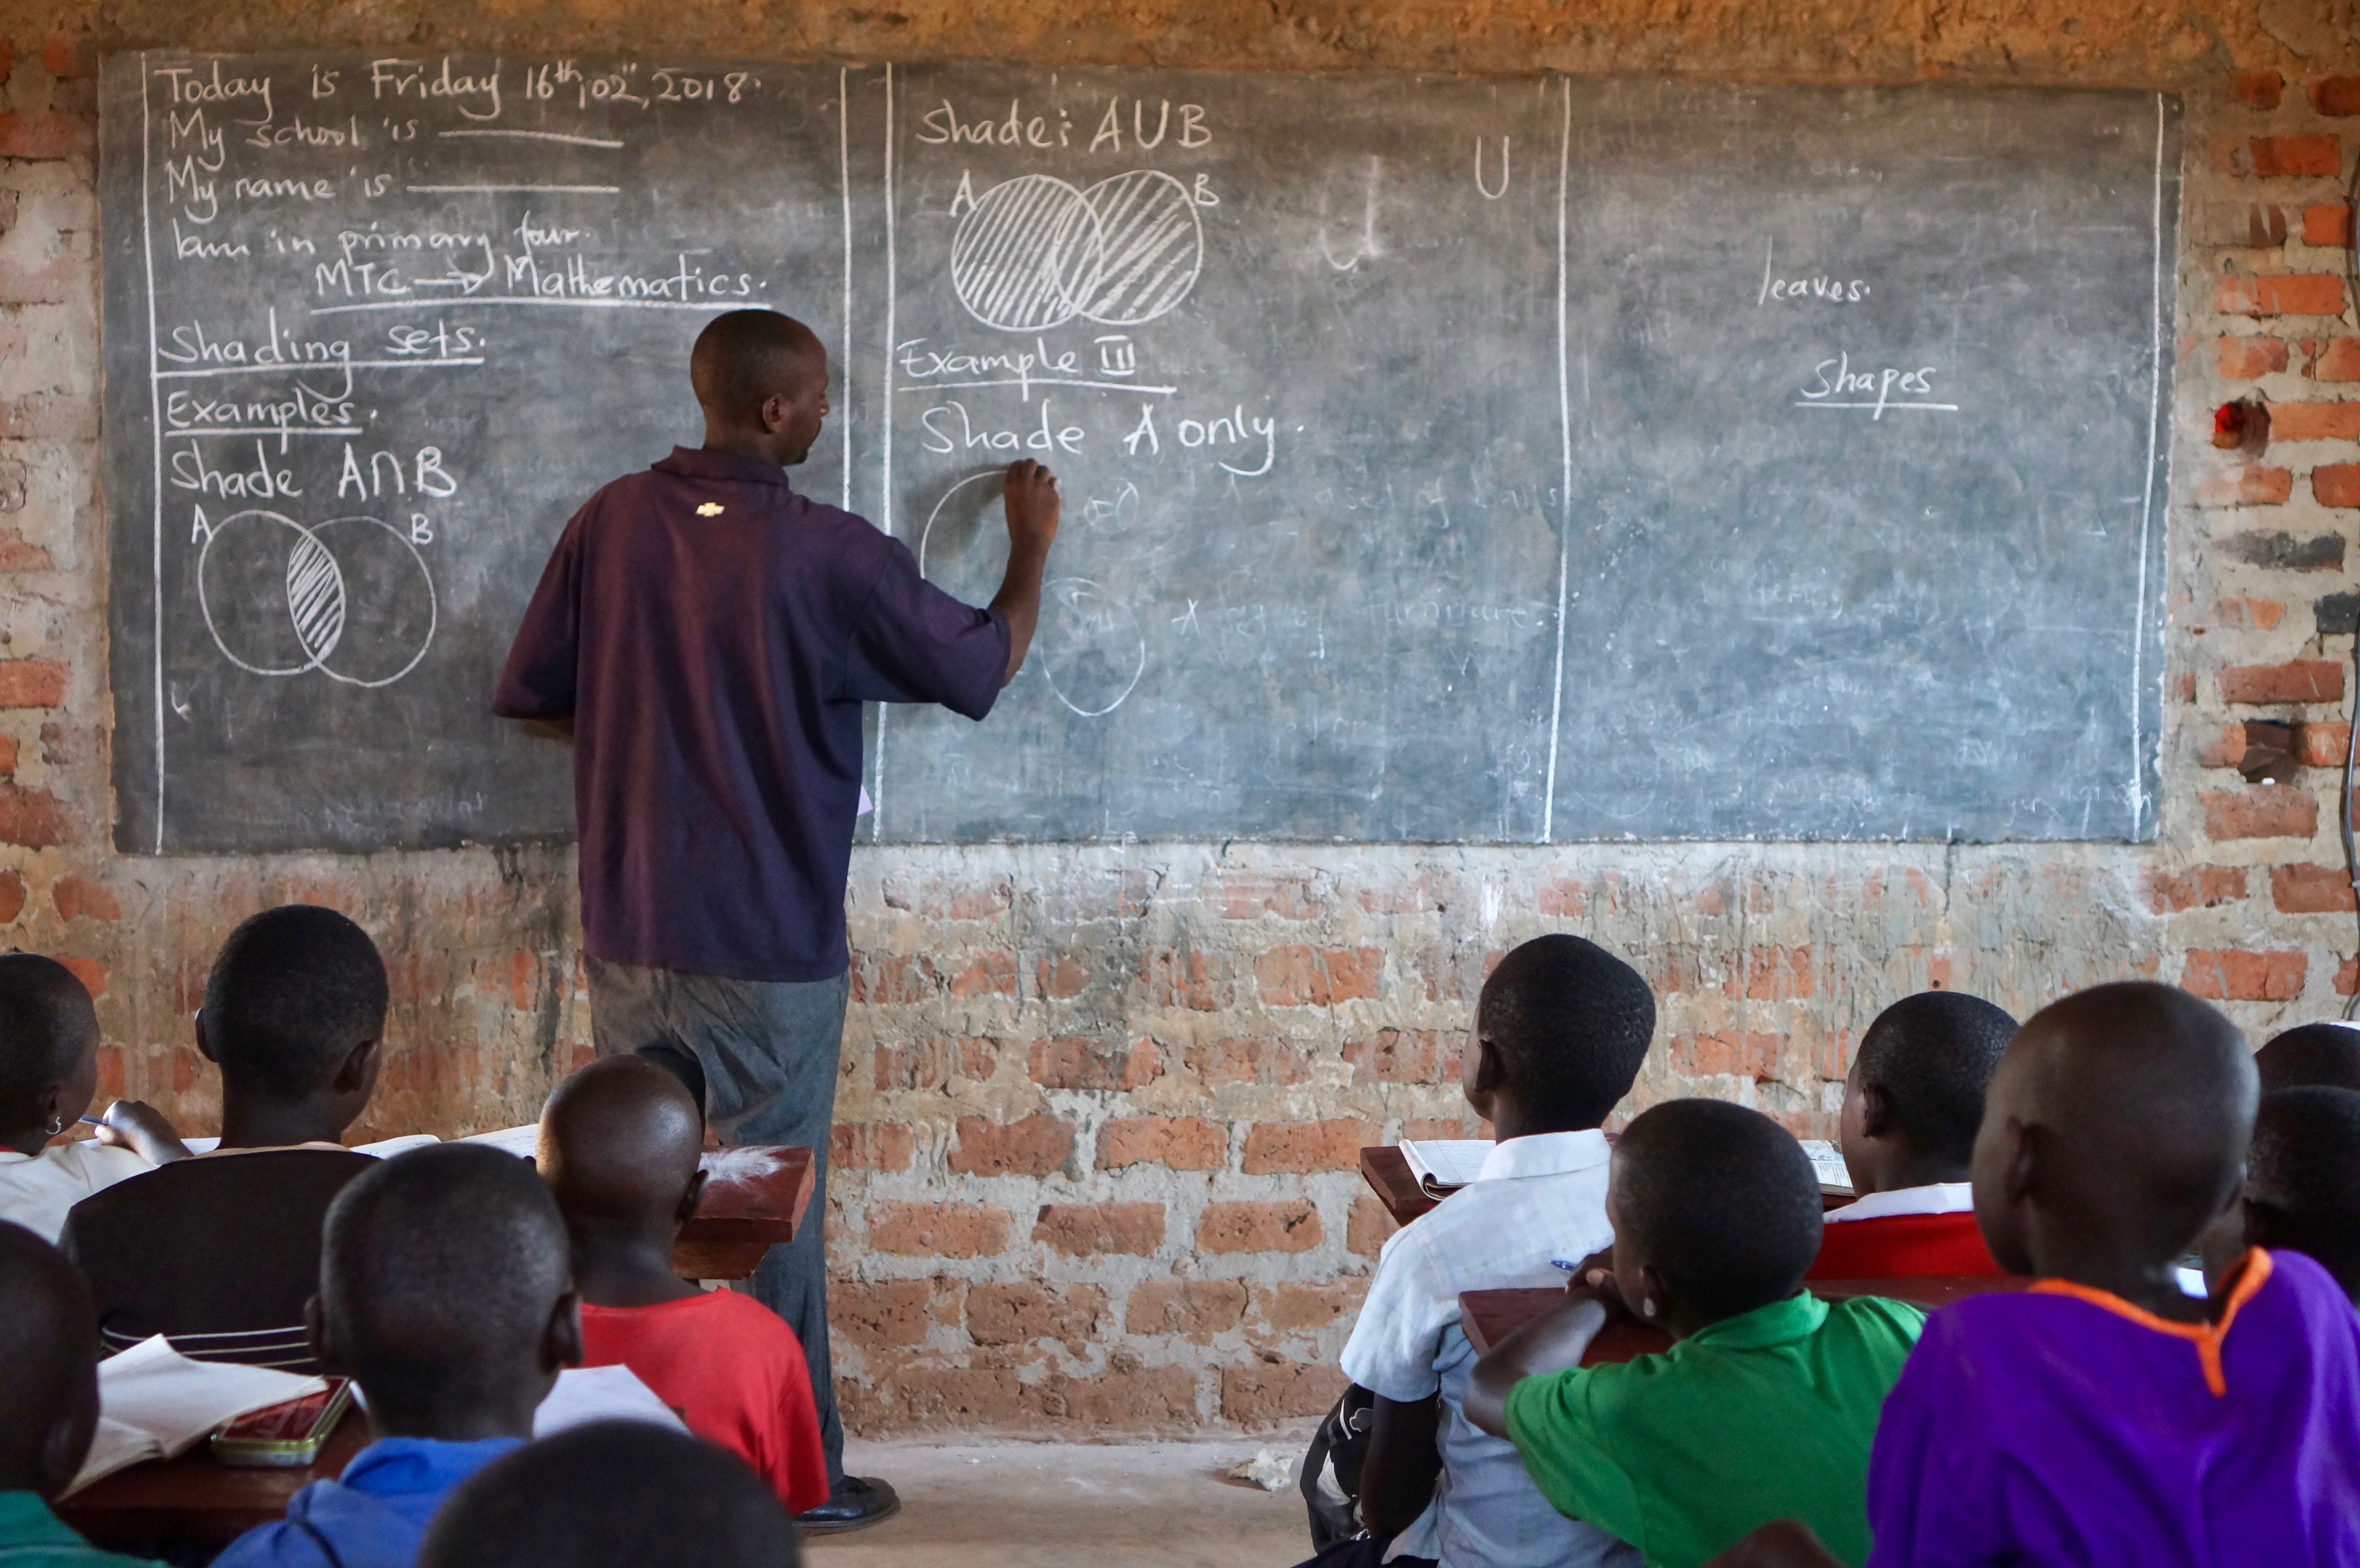 Today is Friday 16th, 02", 2018.
My school is
My name is
Iam in primary four.
MTC → Mathematics.
Shading sets.
Examples.
Shade A∩B
A B
Shade: A U B
A B
U
Example III
Shade A only.
leaves.
Shapes